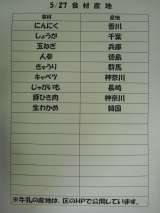 5/27 食材産地
食材 産地
にんにく 香川
しょうが 千葉
玉ねぎ 兵庫
人参 徳島
きゅうり 群馬
キャベツ 神奈川
じゃがいも 長崎
豚ひき肉 神奈川
生わかめ 韓国
※牛乳の産地は、区のHPで公開しています。